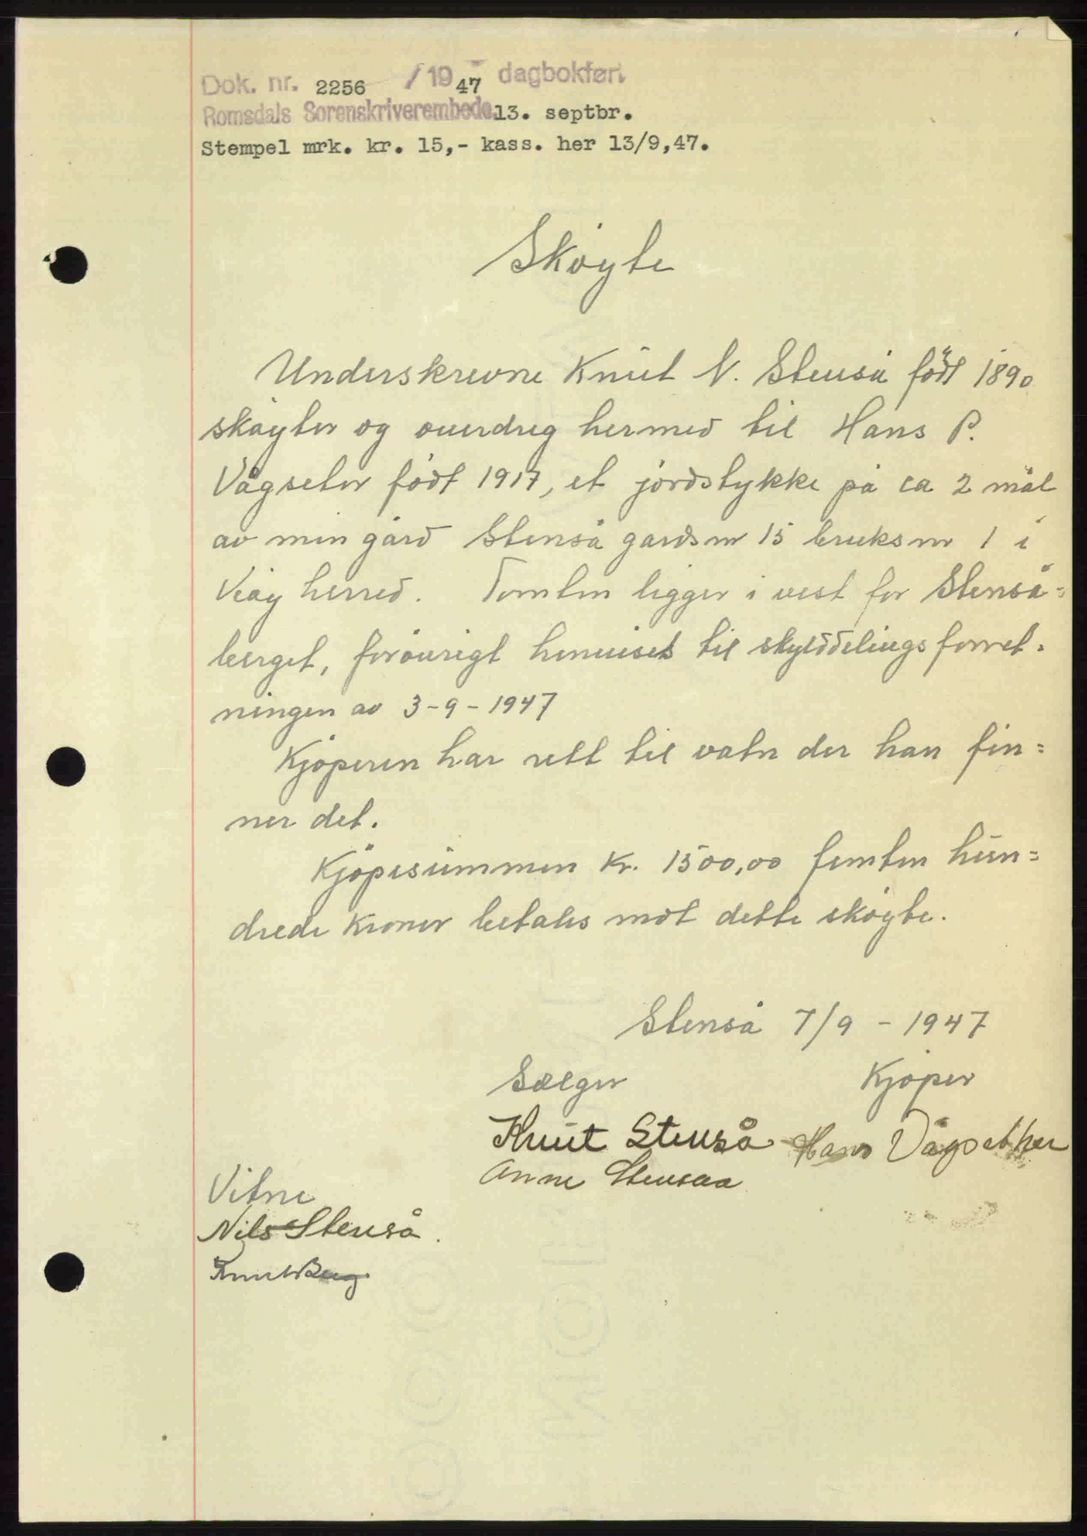 Dok. nr. 2256 / 1947 dagbokført.
Romsdals Sorenskriverembede, 13. septbr.
Stempel mrk. kr. 15,- kass. her 13/9,47.
Skøyte
Underskrevne Knut N. Stenså født 1890
skøyter og overdreg hermed til Hans P.
Vågseter født 1917, et jordstykke på ca 2 mål
av min gård Stenså gardsnr 15 bruksnr 1 i
Veøy herred. Tomten ligger i vest for Stenså=
berget, forøvrigt henvises til skylddelingsforret=
ningen av 3-9-1947
Kjøperen har rett til vatn der han fin=
ner det.
Kjøpesummen Kr. 1500,00 femten hun=
drede Kroner betales mot dette skøyte.
Stenså 7/9 - 1947
Sælger Kjøper
Knut Stenså Hans Vågsether
Anne Stensaa
Vitne
Nils Stenså.
Knut Berg